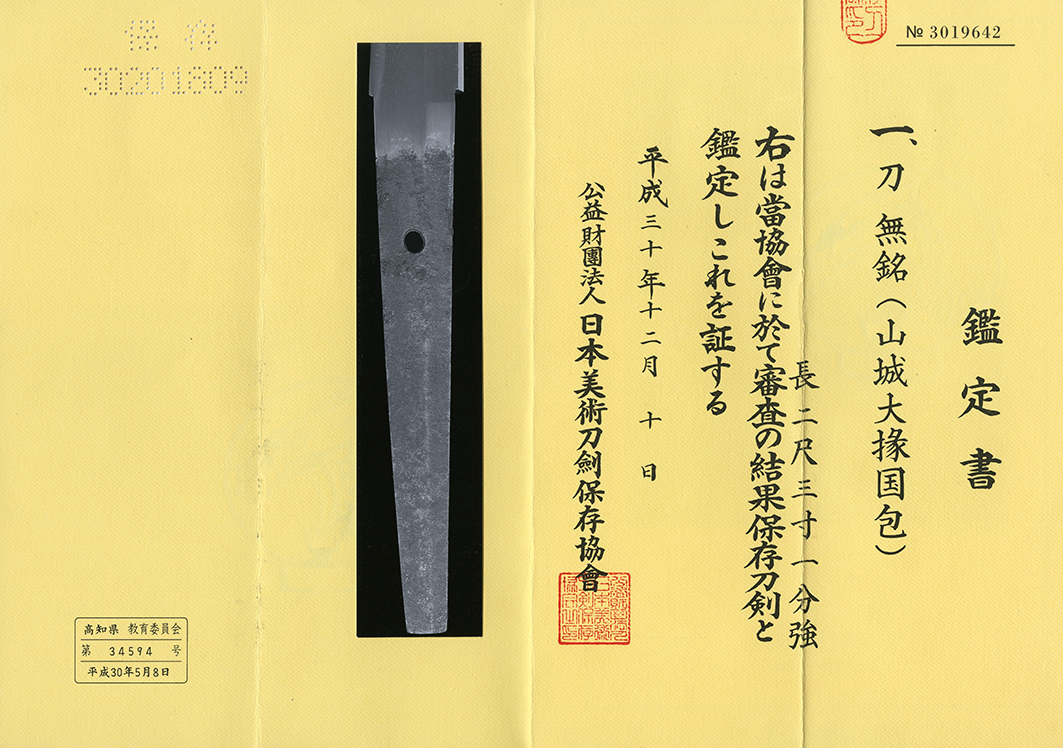 № 3019642
鑑定書
一、刀 無銘(山城大掾国包)
長二尺三寸一分強
右は當協會に於て審査の結果保存刀剣と
鑑定しこれを証する
平成三十年十二月 十 日
公益財團法人 日本美術刀劍保存協會
保存
30201809
高知県 教育委員会
第 34594 号
平成30年5月8日